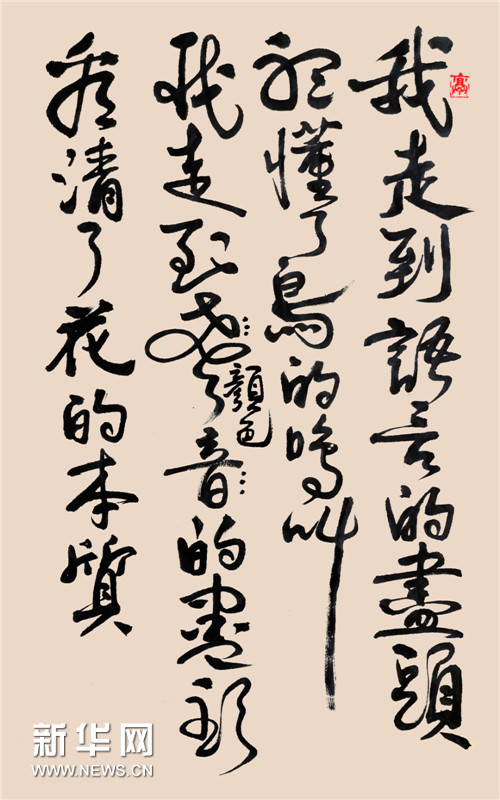 我走到語言的盡頭
聽懂了鳥的鳴叫
我走到聲音的盡頭
顏色
看清了花的本質
新华网
WWW.NEWS.CN